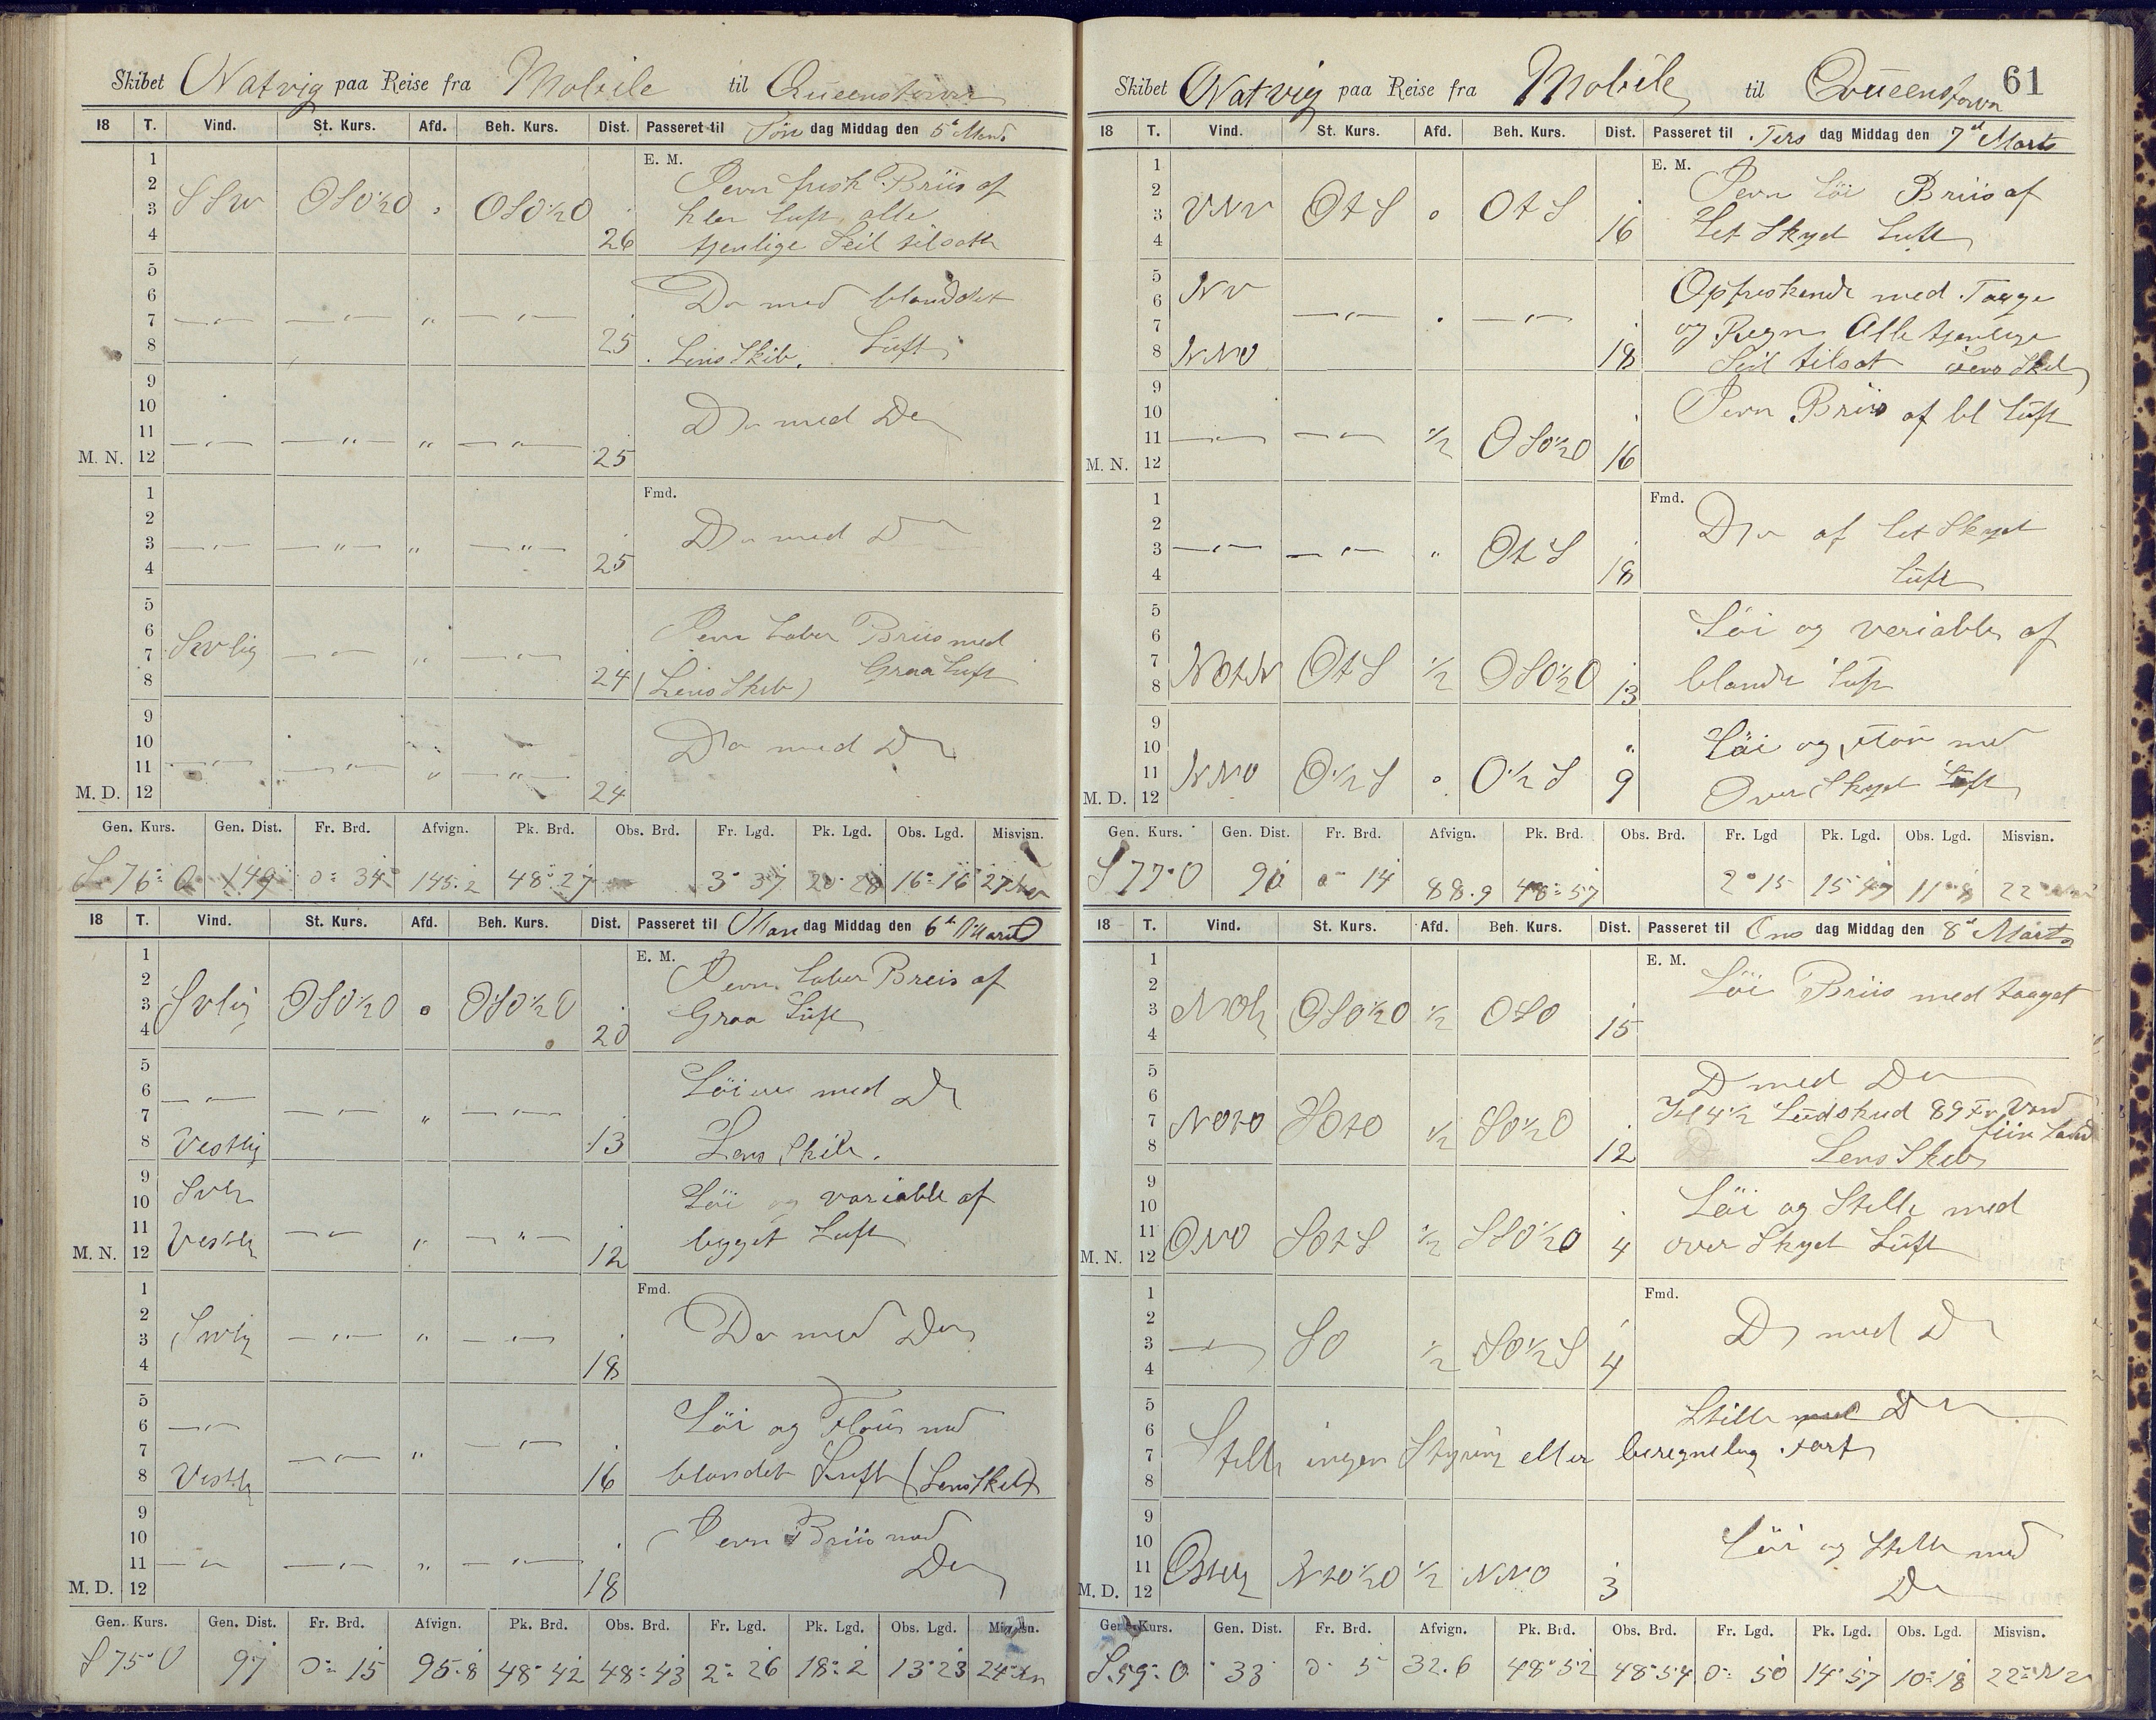 Skibet Natvig paa Reise fra Mobile til Queenstown
18 T. Vind. St. Kurs. Afd. Beh. Kurs. Dist. Passeret til Søn dag Middag den 5te Marts
E. M.
1 2 3 4 SSW OSO½O " OSO½O 26 Jevn frisk Briis af
klar Luft, alle
tjenlige Seil tilsatte
5 6 7 8 —"— —"— " —"— 25 Do med blanddet
Lens Skib. Luft
9 10 11 M. N. 12 —"— —"— " —"— 25 Do med Do
Fmd.
1 2 3 4 —"— —"— " —"— 25 Do med Do
5 6 7 8 SWlig —"— " —"— 24 Jevn Laber Briis med
(Lens Skib) Graa Luft
9 10 11 M. D. 12 —"— —"— " —"— 24 Do med Do
Gen. Kurs. Gen. Dist. Fr. Brd. Afvign. Pk. Brd. Obs. Brd. Fr. Lgd. Pk. Lgd. Obs. Lgd. Misvisn.
S 76° O 149 0° 34 145.2 48° 27 3° 37 20° 28 16° 16 27°
18 T. Vind. St. Kurs. Afd. Beh. Kurs. Dist. Passeret til Man dag Middag den 6te Marts
E. M.
1 2 3 4 SVlig OSO½O 0 OSO½O 20 Jevn Laber Breis af
Graa Luft
5 6 7 8 —"— Vestlig —"— " —"— 13 Löiere med Do
Lens Skib.
9 10 11 M. N. 12 SVlig Vestlig —"— " —"— 12 Löi og variable af
bygget Luft
Fmd.
1 2 3 4 SWlig —"— " —"— 18 Do med Do
5 6 7 8 —"— Vestlig —"— " —"— 16 Löi og Flou med
blandet Luft (Lens Skib)
9 10 11 M. D. 12 —"— —"— " —"— 18 Jevn Briis med
Do
Gen. Kurs. Gen. Dist. Fr. Brd. Afvign. Pk. Brd. Obs. Brd. Fr. Lgd. Pk. Lgd. Obs. Lgd. Misvisn.
S 75° O 97 0° 15 95.8 48° 42 48° 43 2° 26 18° 2 13° 23 24°
Skibet Natvig paa Reise fra Mobile til Queenstown 61
18 T. Vind. St. Kurs. Afd. Beh. Kurs. Dist. Passeret til Tirs dag Middag den 7de Marts
E. M.
1 2 3 4 VNV OtS 0 OtS 16 Jevn Löi Briis af
Let Skyet Luft
5 6 7 8 NV NNO —"— " —"— 18 Opfriskende med Taage
og Regn Alle tjenlige
Seil tilsat Lens Skib
9 10 11 M. N. 12 —"— —"— ½ OSO½O 16 Jevn Briis af bl Luft
Fmd.
1 2 3 4 —"— —"— " OtS 18 Do af Let Skyet
Luft
5 6 7 8 NOtN OtS ½ OSO½O 13 Löi og veriable af
blande Luft
9 10 11 M. D. 12 NNO O½S 0 O½S 9 Löi og flou med
Over Skyet Luft
Gen. Kurs. Gen. Dist. Fr. Brd. Afvign. Pk. Brd. Obs. Brd. Fr. Lgd Pk. Lgd. Obs. Lgd. Misvisn.
S 77° O 90 0° 14 88.9 48° 57 2° 15 15° 47 11° 8 22°
18 T. Vind. St. Kurs. Afd. Beh. Kurs. Dist. Passeret til Ons dag Middag den 8de Marts
E. M.
1 2 3 4 NOlig OSO½O ½ OSO 15 Löi Briis med taaget
5 6 7 8 NOtO SOtO ½ SO½O 12 Do med Do
Kl 4½ Lodskud 89 Fv Vand
fiin Sand
Lens Skib
9 10 11 M. N. 12 ONO SOtS ½ SSO½O 4 Löi og Stille med
over Skyet Luft
Fmd.
1 2 3 4 —"— SO ½ SO½S 4 Do med Do
5 6 7 8 Stille med Do
Stille ingen Styring eller beregnelig Fart
9 10 11 M. D. 12 Ostlig NtO½O ½ NNO 3 Löi og Stille med
Do
Gen. Kurs. Gen. Dist. Fr. Brd. Afvign. Pk. Brd. Obs. Brd. Fr. Lgd. Pk. Lgd. Obs. Lgd. Misvisn.
S. 59° O 33 0° 5 32.6 48° 52 48° 54 0° 50 14° 57 10° 18 22°